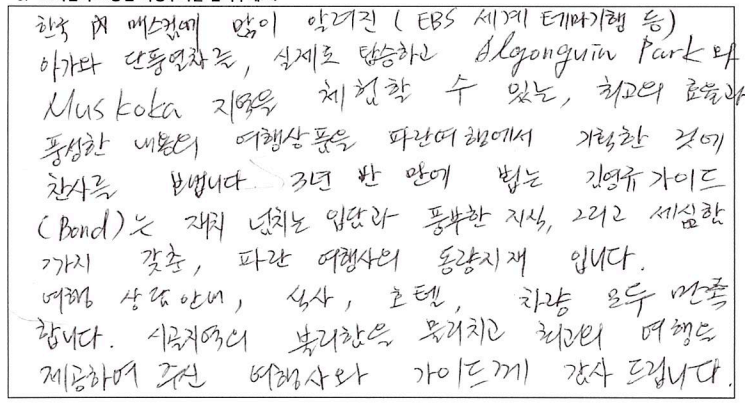 한국 內 매스컴에 많이 알려진 (EBS 세계테마기행 등)
아가와 단풍열차를, 실제로 탑승하고 Algonguin Park와
Muskoka 지역을 체험할 수 있는, 최고의 효율과
풍성한 내용의 여행상품을 파란여행에서 기획한 것에
찬사를 보냅니다. 3년 반 만에 뵙는 김영규 가이드
(Bond)는 재치 넘치는 입담과 풍부한 지식, 그리고 세심함
까지 갖춘, 파란 여행사의 동량지재 입니다.
여행 상담안내, 식사, 호텔, 차량 모두 만족
합니다. 시골지역의 불리함을 물리치고 최고의 여행을
제공하여 주신 여행사와 가이드께 감사 드립니다.